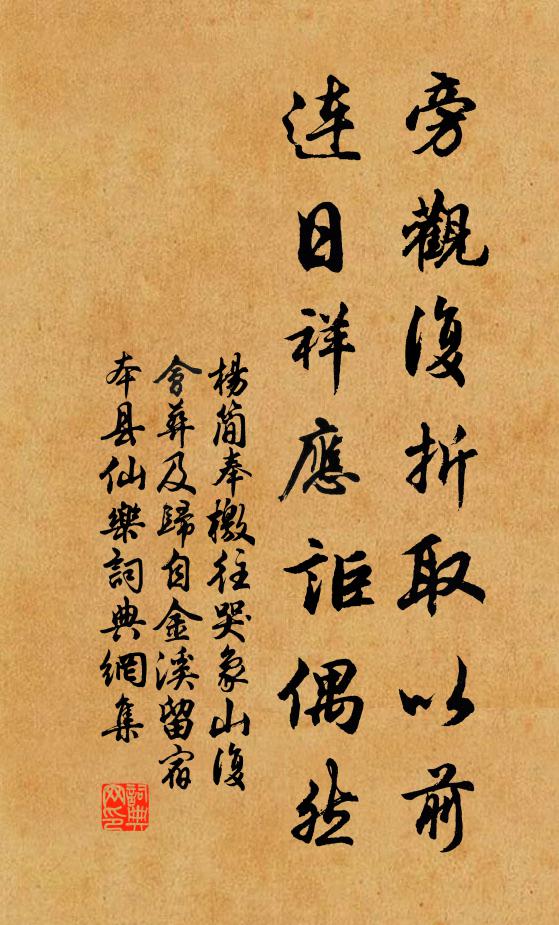 旁觀復折取以前
連日祥應詎偶然
楊簡奉檄往哭象山復
會葬及歸自金溪留宿
本县仙樂詞典網集
詞典
网印